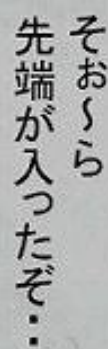 そぉ～ら
先端が入ったぞ・・